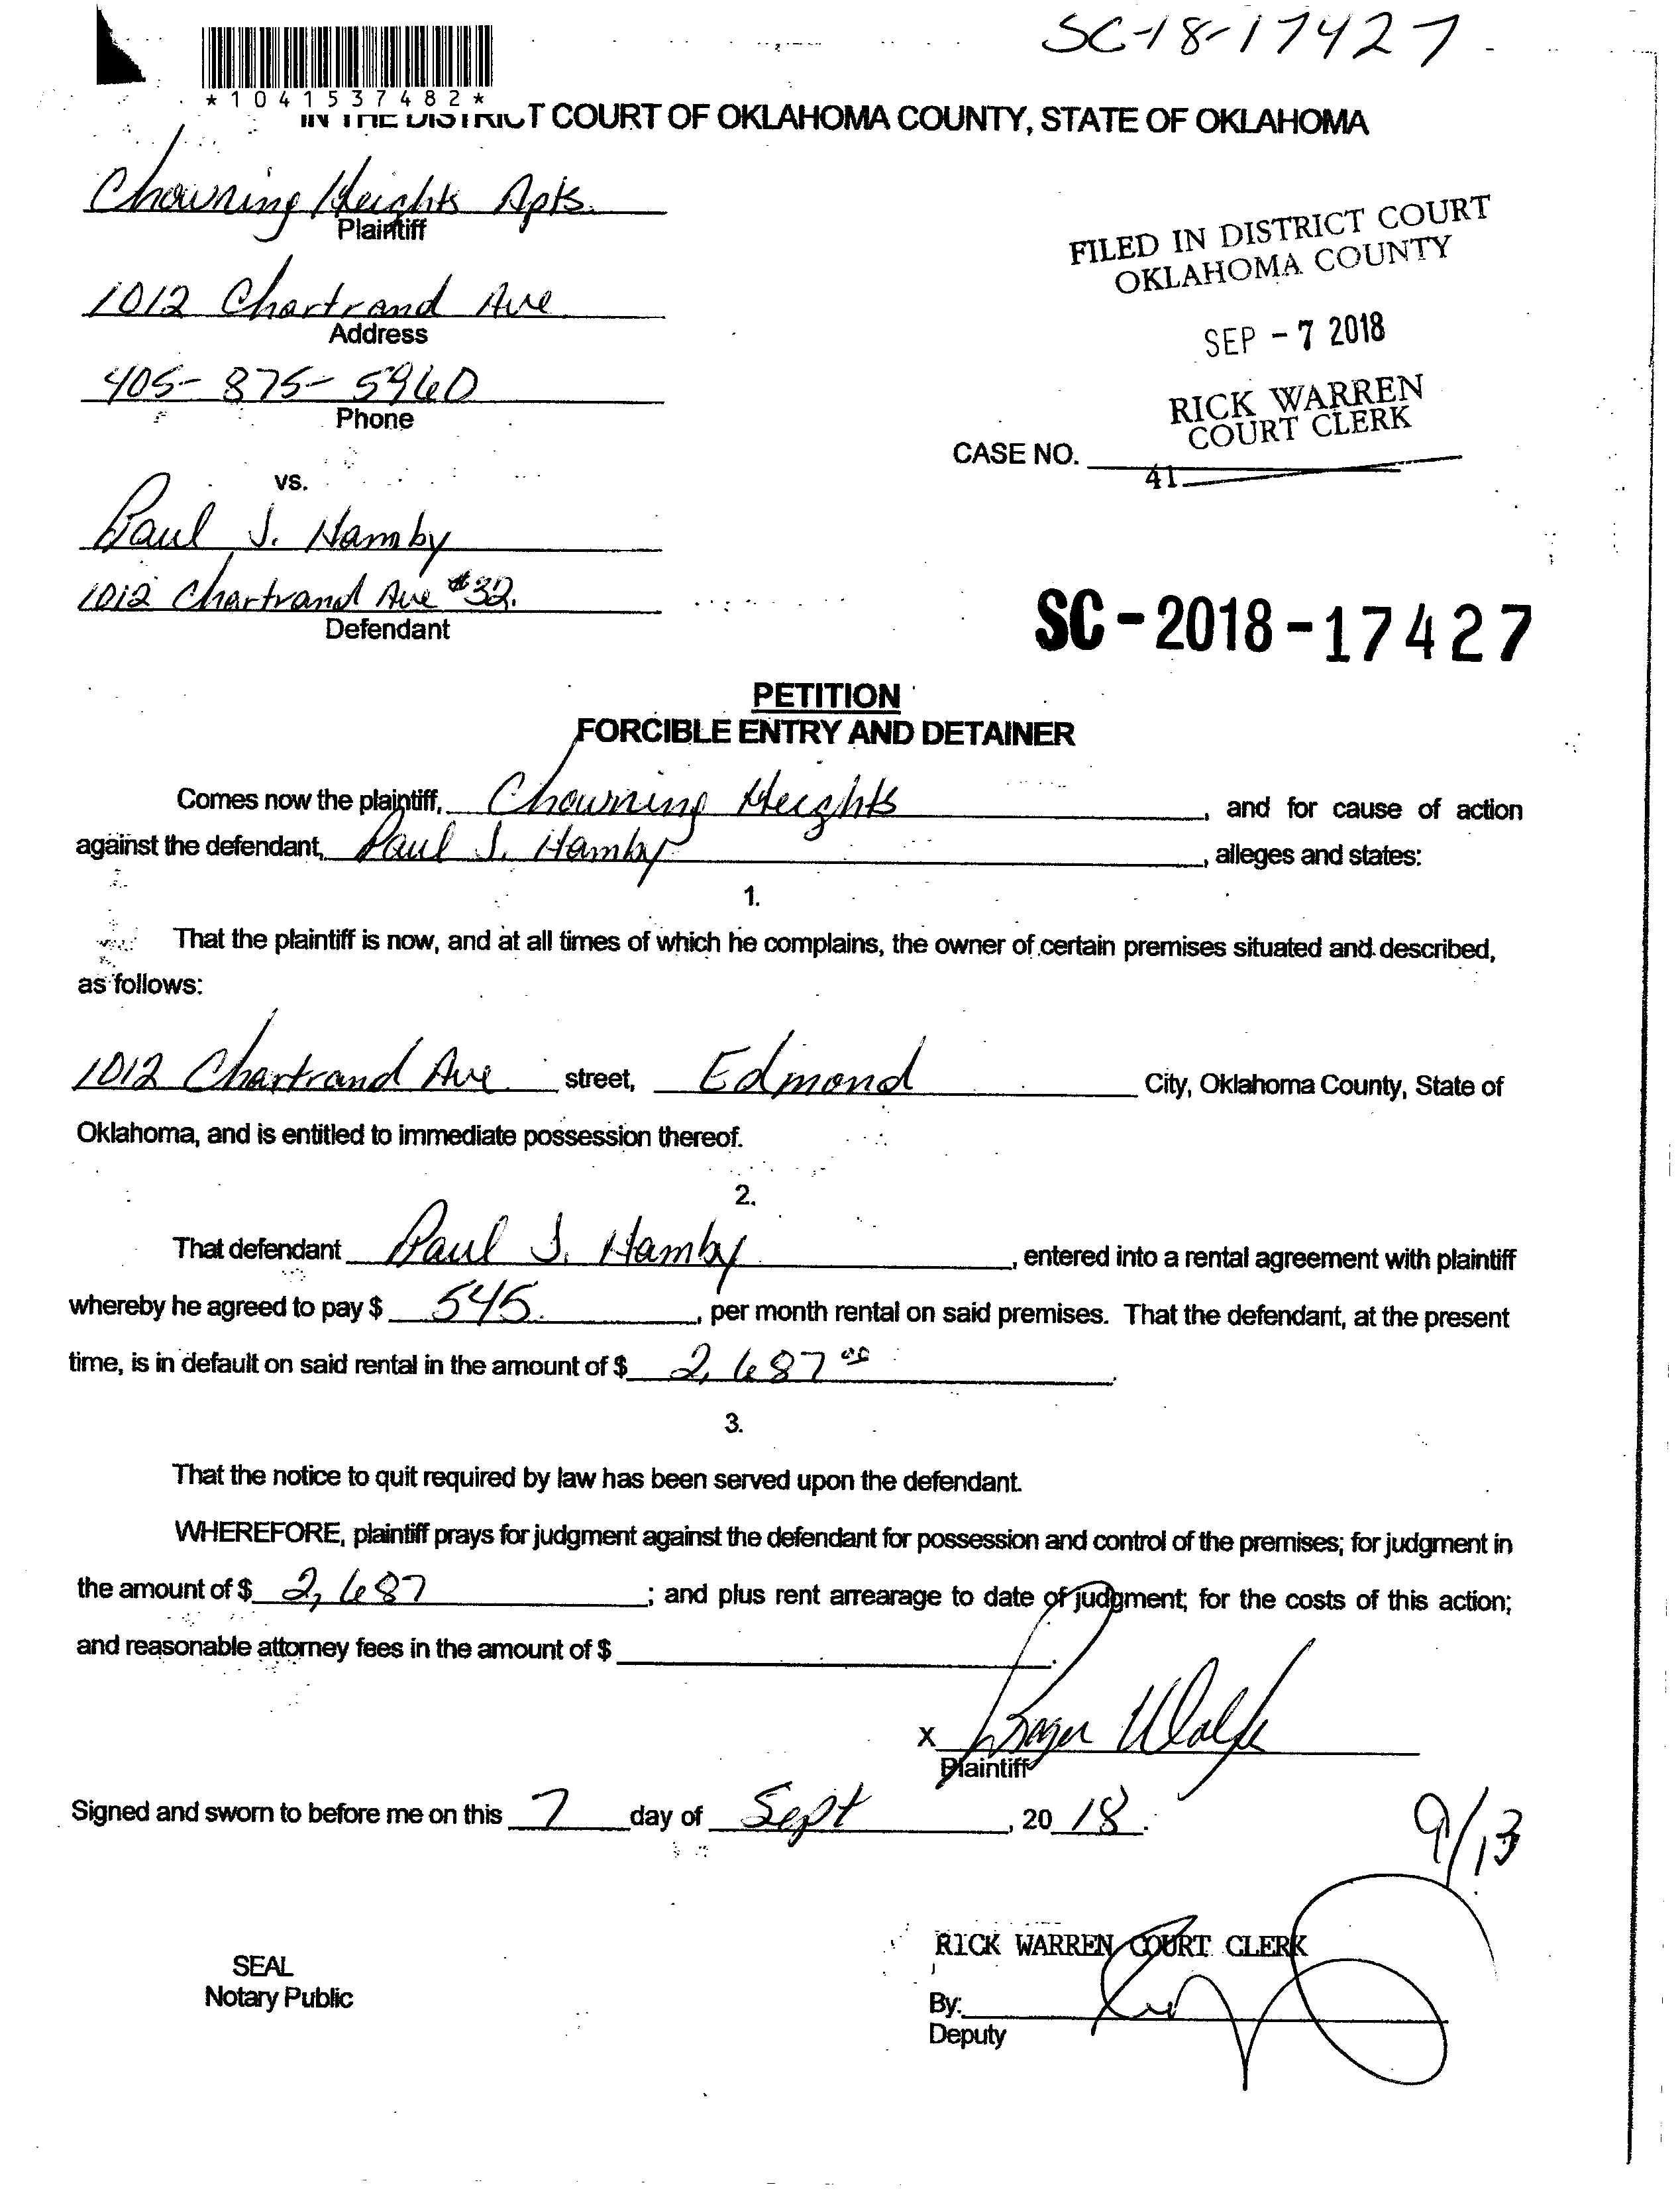 SC-18-17427
*1041537482*
IN THE DISTRICT COURT OF OKLAHOMA COUNTY, STATE OF OKLAHOMA
Chowning Heights Apts.
Plaintiff
1012 Chartrand Ave
Address
405-875-5960
Phone
FILED IN DISTRICT COURT
OKLAHOMA COUNTY
SEP - 7 2018
RICK WARREN
COURT CLERK
CASE NO.
41
vs.
Paul J. Hamby
1012 Chartrand Ave #32.
Defendant
SC-2018-17427
PETITION
FORCIBLE ENTRY AND DETAINER
Comes now the plaintiff, Chowning Heights, and for cause of action
against the defendant, Paul J. Hamby, alleges and states:
1.
That the plaintiff is now, and at all times of which he complains, the owner of certain premises situated and described,
as follows:
1012 Chartrand Ave street, Edmond City, Oklahoma County, State of
Oklahoma, and is entitled to immediate possession thereof.
2.
That defendant Paul J. Hamby, entered into a rental agreement with plaintiff
whereby he agreed to pay $ 545., per month rental on said premises. That the defendant, at the present
time, is in default on said rental in the amount of $ 2,687 00.
3.
That the notice to quit required by law has been served upon the defendant.
WHEREFORE, plaintiff prays for judgment against the defendant for possession and control of the premises; for judgment in
the amount of $ 2,687; and plus rent arrearage to date of judgment; for the costs of this action;
and reasonable attorney fees in the amount of $ .
X
Plaintiff
Signed and sworn to before me on this 7 day of Sept, 20 18.
9/13
RICK WARREN COURT CLERK
SEAL
Notary Public
By:
Deputy